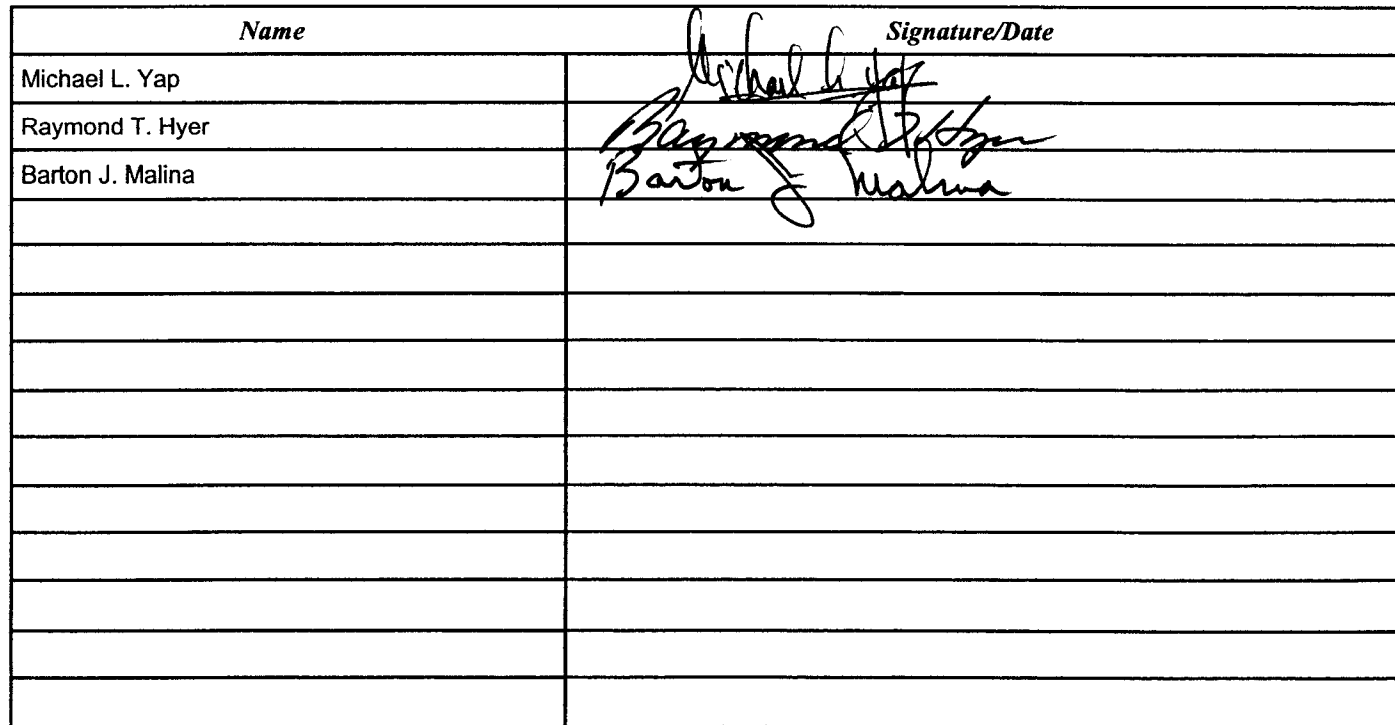 Name Signature/Date
Michael L. Yap Michael L. Yap
Raymond T. Hyer Raymond T. Hyer
Barton J. Malina Barton J. Malina